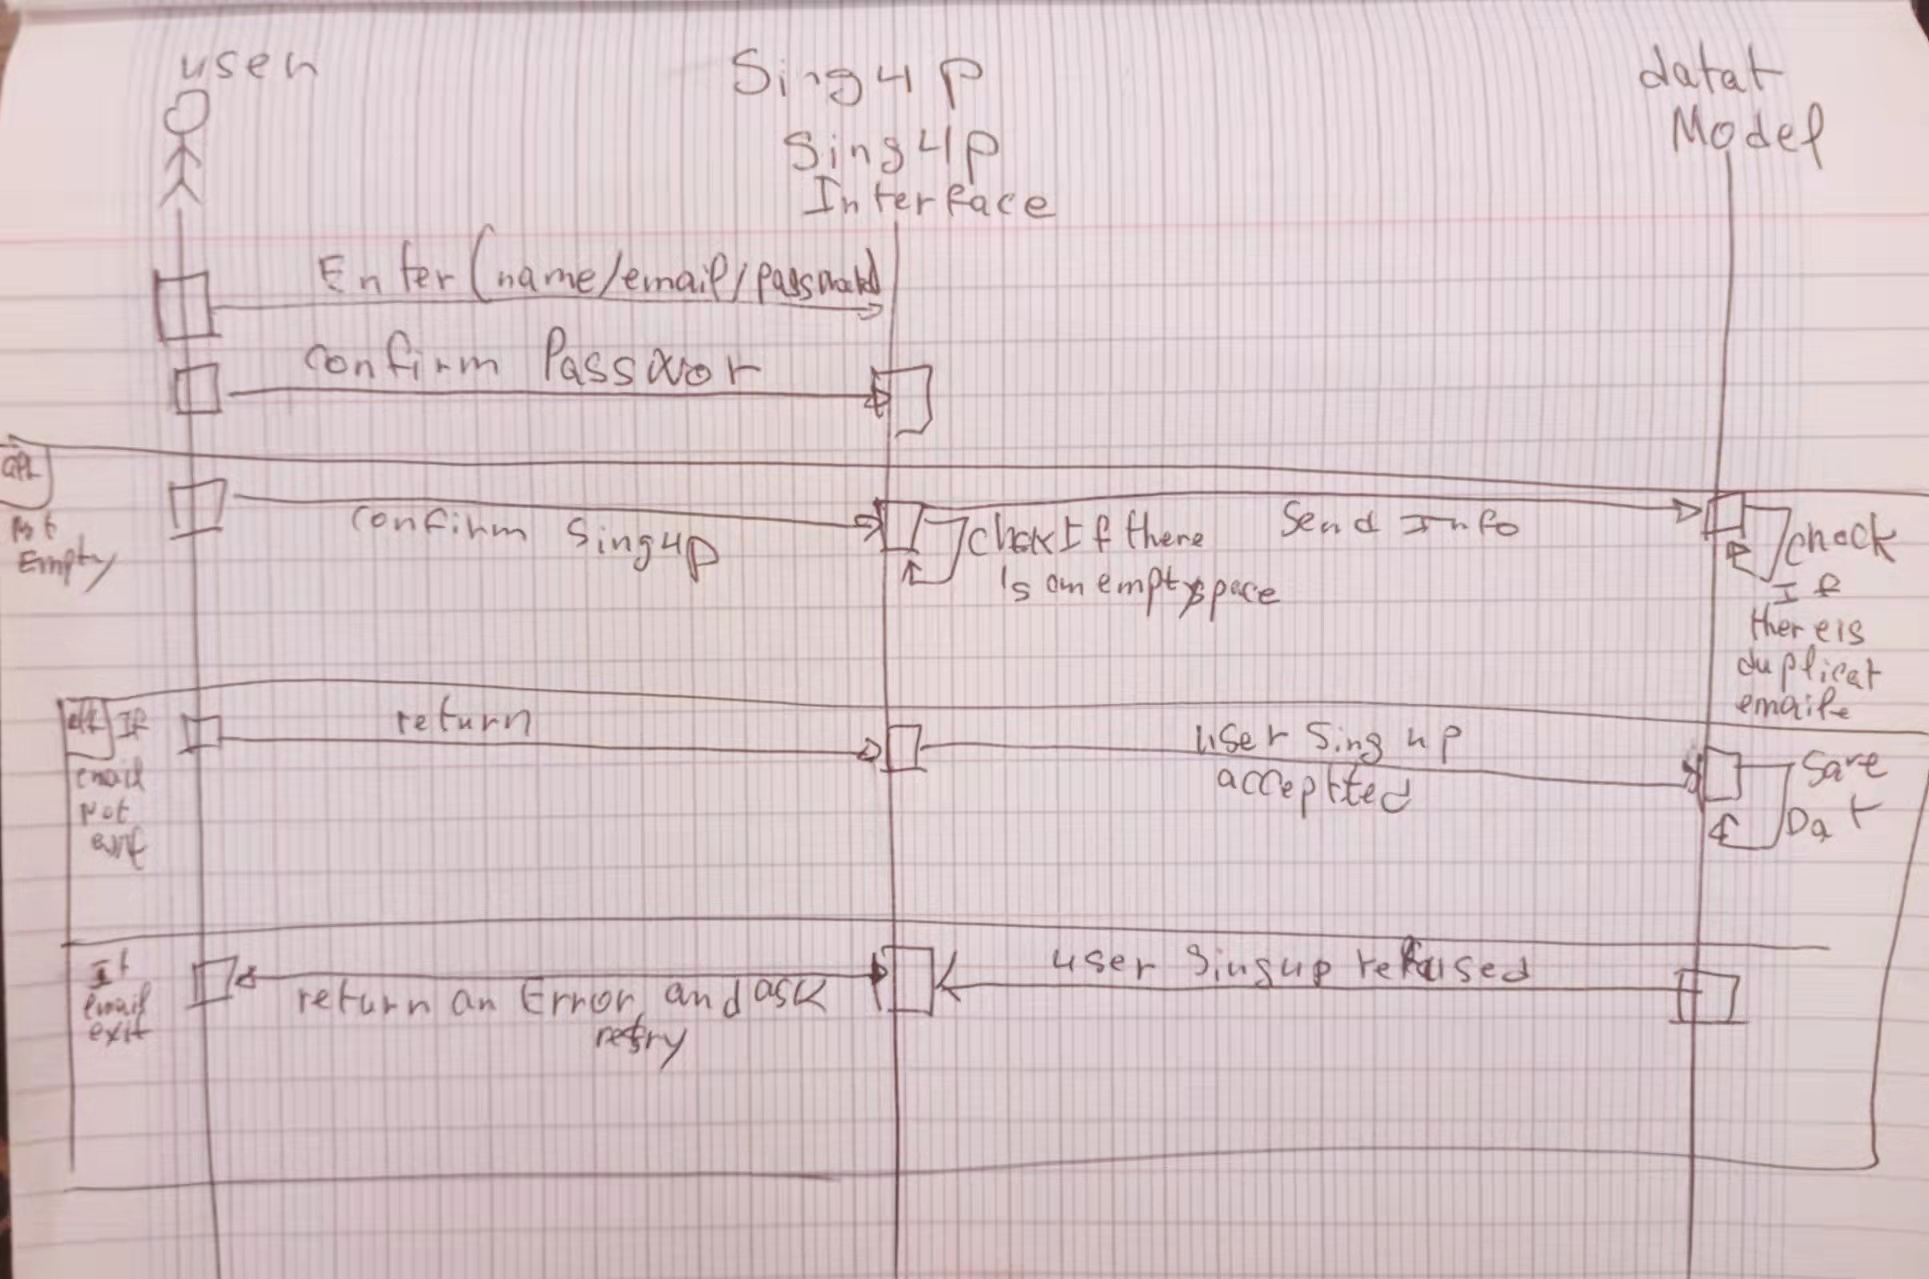 user
Sing up
Sing up
Interface
datat
Model
Enter (name/email/password)
confirm Passwor
Not
Empty
confirm Singup
Send Info
chek If there
is an empty space
check
If
there is
duplicat
emaile
alt If
email
Not
return
user Sing up
acceptted
Save
Dat
If
email
exit
return an Error, and ask
retry
user Singup refused